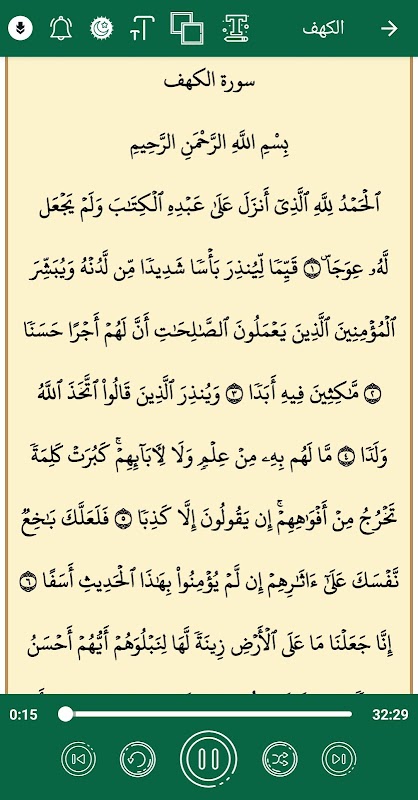 الكهف
سورة الكهف
بِسْمِ اللَّهِ الرَّحْمَٰنِ الرَّحِيمِ
ٱلْحَمْدُ لِلَّهِ ٱلَّذِىٓ أَنزَلَ عَلَىٰ عَبْدِهِ ٱلْكِتَٰبَ وَلَمْ يَجْعَل
لَّهُۥ عِوَجَاۜ ۝١ قَيِّمًا لِّيُنذِرَ بَأْسًا شَدِيدًا مِّن لَّدُنْهُ وَيُبَشِّرَ
ٱلْمُؤْمِنِينَ ٱلَّذِينَ يَعْمَلُونَ ٱلصَّٰلِحَٰتِ أَنَّ لَهُمْ أَجْرًا حَسَنًا
۝٢ مَّٰكِثِينَ فِيهِ أَبَدًا ۝٣ وَيُنذِرَ ٱلَّذِينَ قَالُوا۟ ٱتَّخَذَ ٱللَّهُ
وَلَدًا ۝٤ مَّا لَهُم بِهِۦ مِنْ عِلْمٍ وَلَا لِءَابَآئِهِمْ ۚ كَبُرَتْ كَلِمَةً
تَخْرُجُ مِنْ أَفْوَٰهِهِمْ ۚ إِن يَقُولُونَ إِلَّا كَذِبًا ۝٥ فَلَعَلَّكَ بَٰخِعٌ
نَّفْسَكَ عَلَىٰٓ ءَاثَٰرِهِمْ إِن لَّمْ يُؤْمِنُوا۟ بِهَٰذَا ٱلْحَدِيثِ أَسَفًا ۝٦
إِنَّا جَعَلْنَا مَا عَلَى ٱلْأَرْضِ زِينَةً لَّهَا لِنَبْلُوَهُمْ أَيُّهُمْ أَحْسَنُ
0:15 32:29